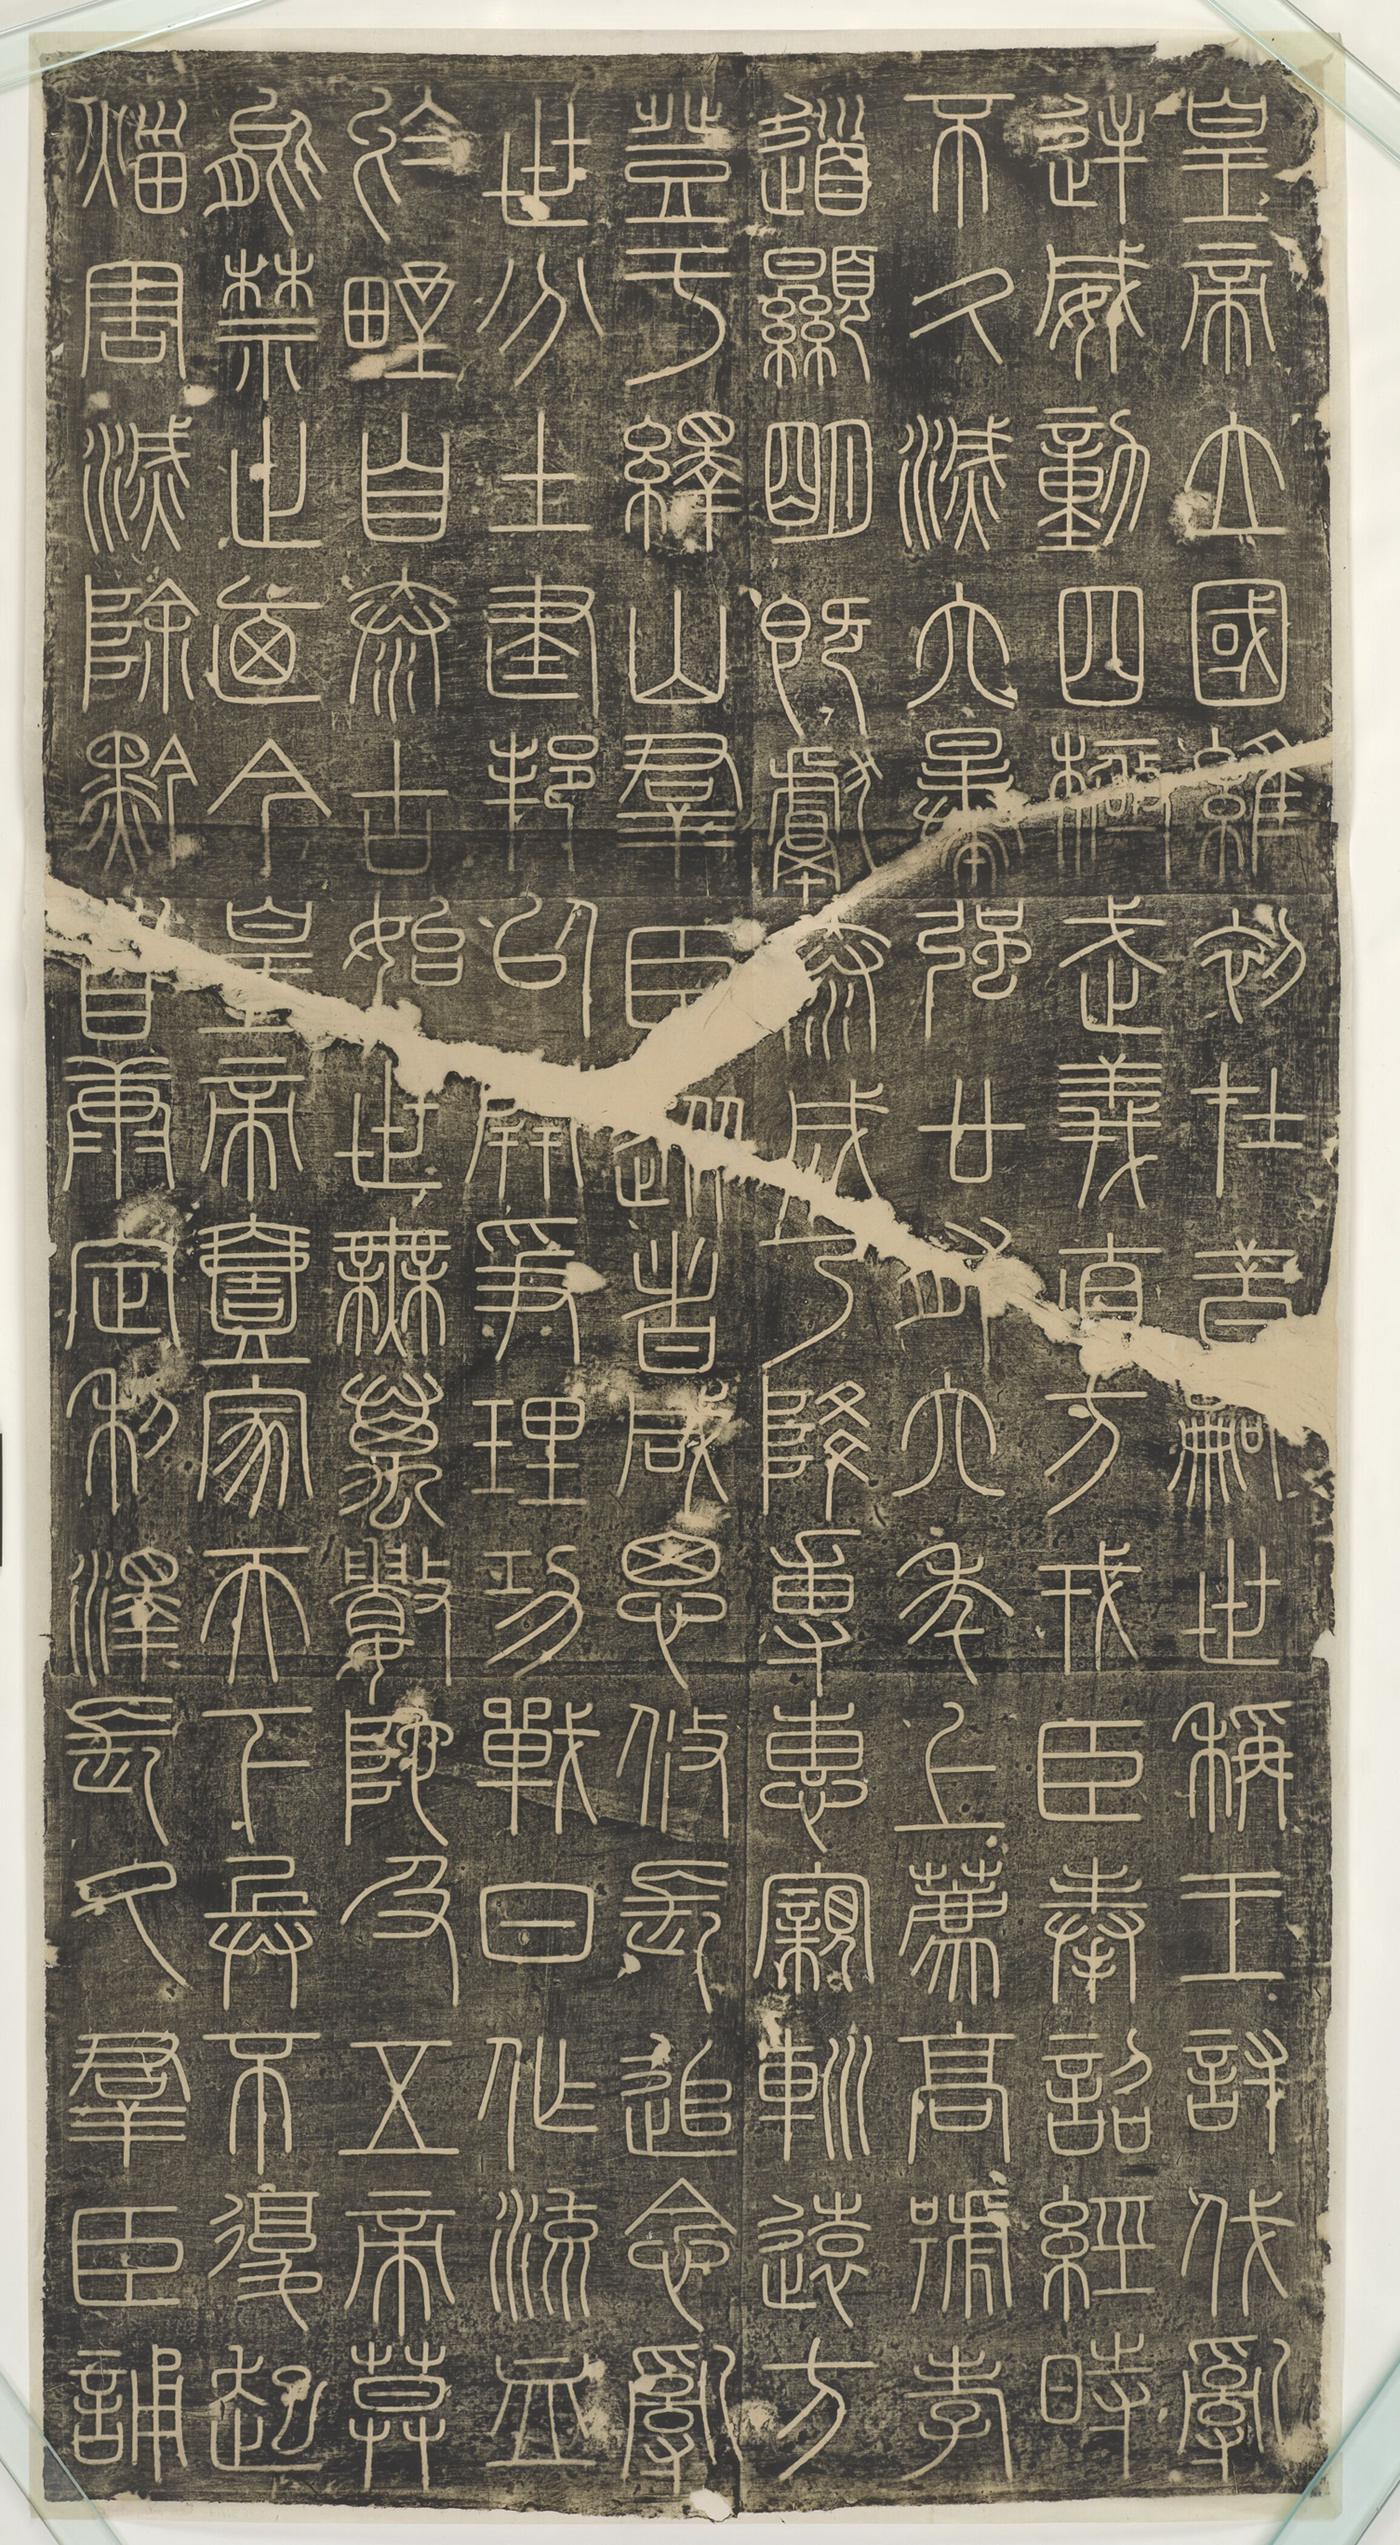 皇帝立國維初在昔嗣世稱王討伐亂
逆威動四極武義直方戎臣奉詔經時
不久滅六暴强廿有六年上薦高號孝
道顯明既獻泰成乃降專惠親巡遠方
登于繹山群臣從者咸思攸長追念亂
世分土建邦以開爭理功戰日作流血
於野自泰古始世無萬數陀及五帝莫
能禁止迺今皇帝壹家天下兵不復起
災害滅除黔首康定利澤長久群臣誦